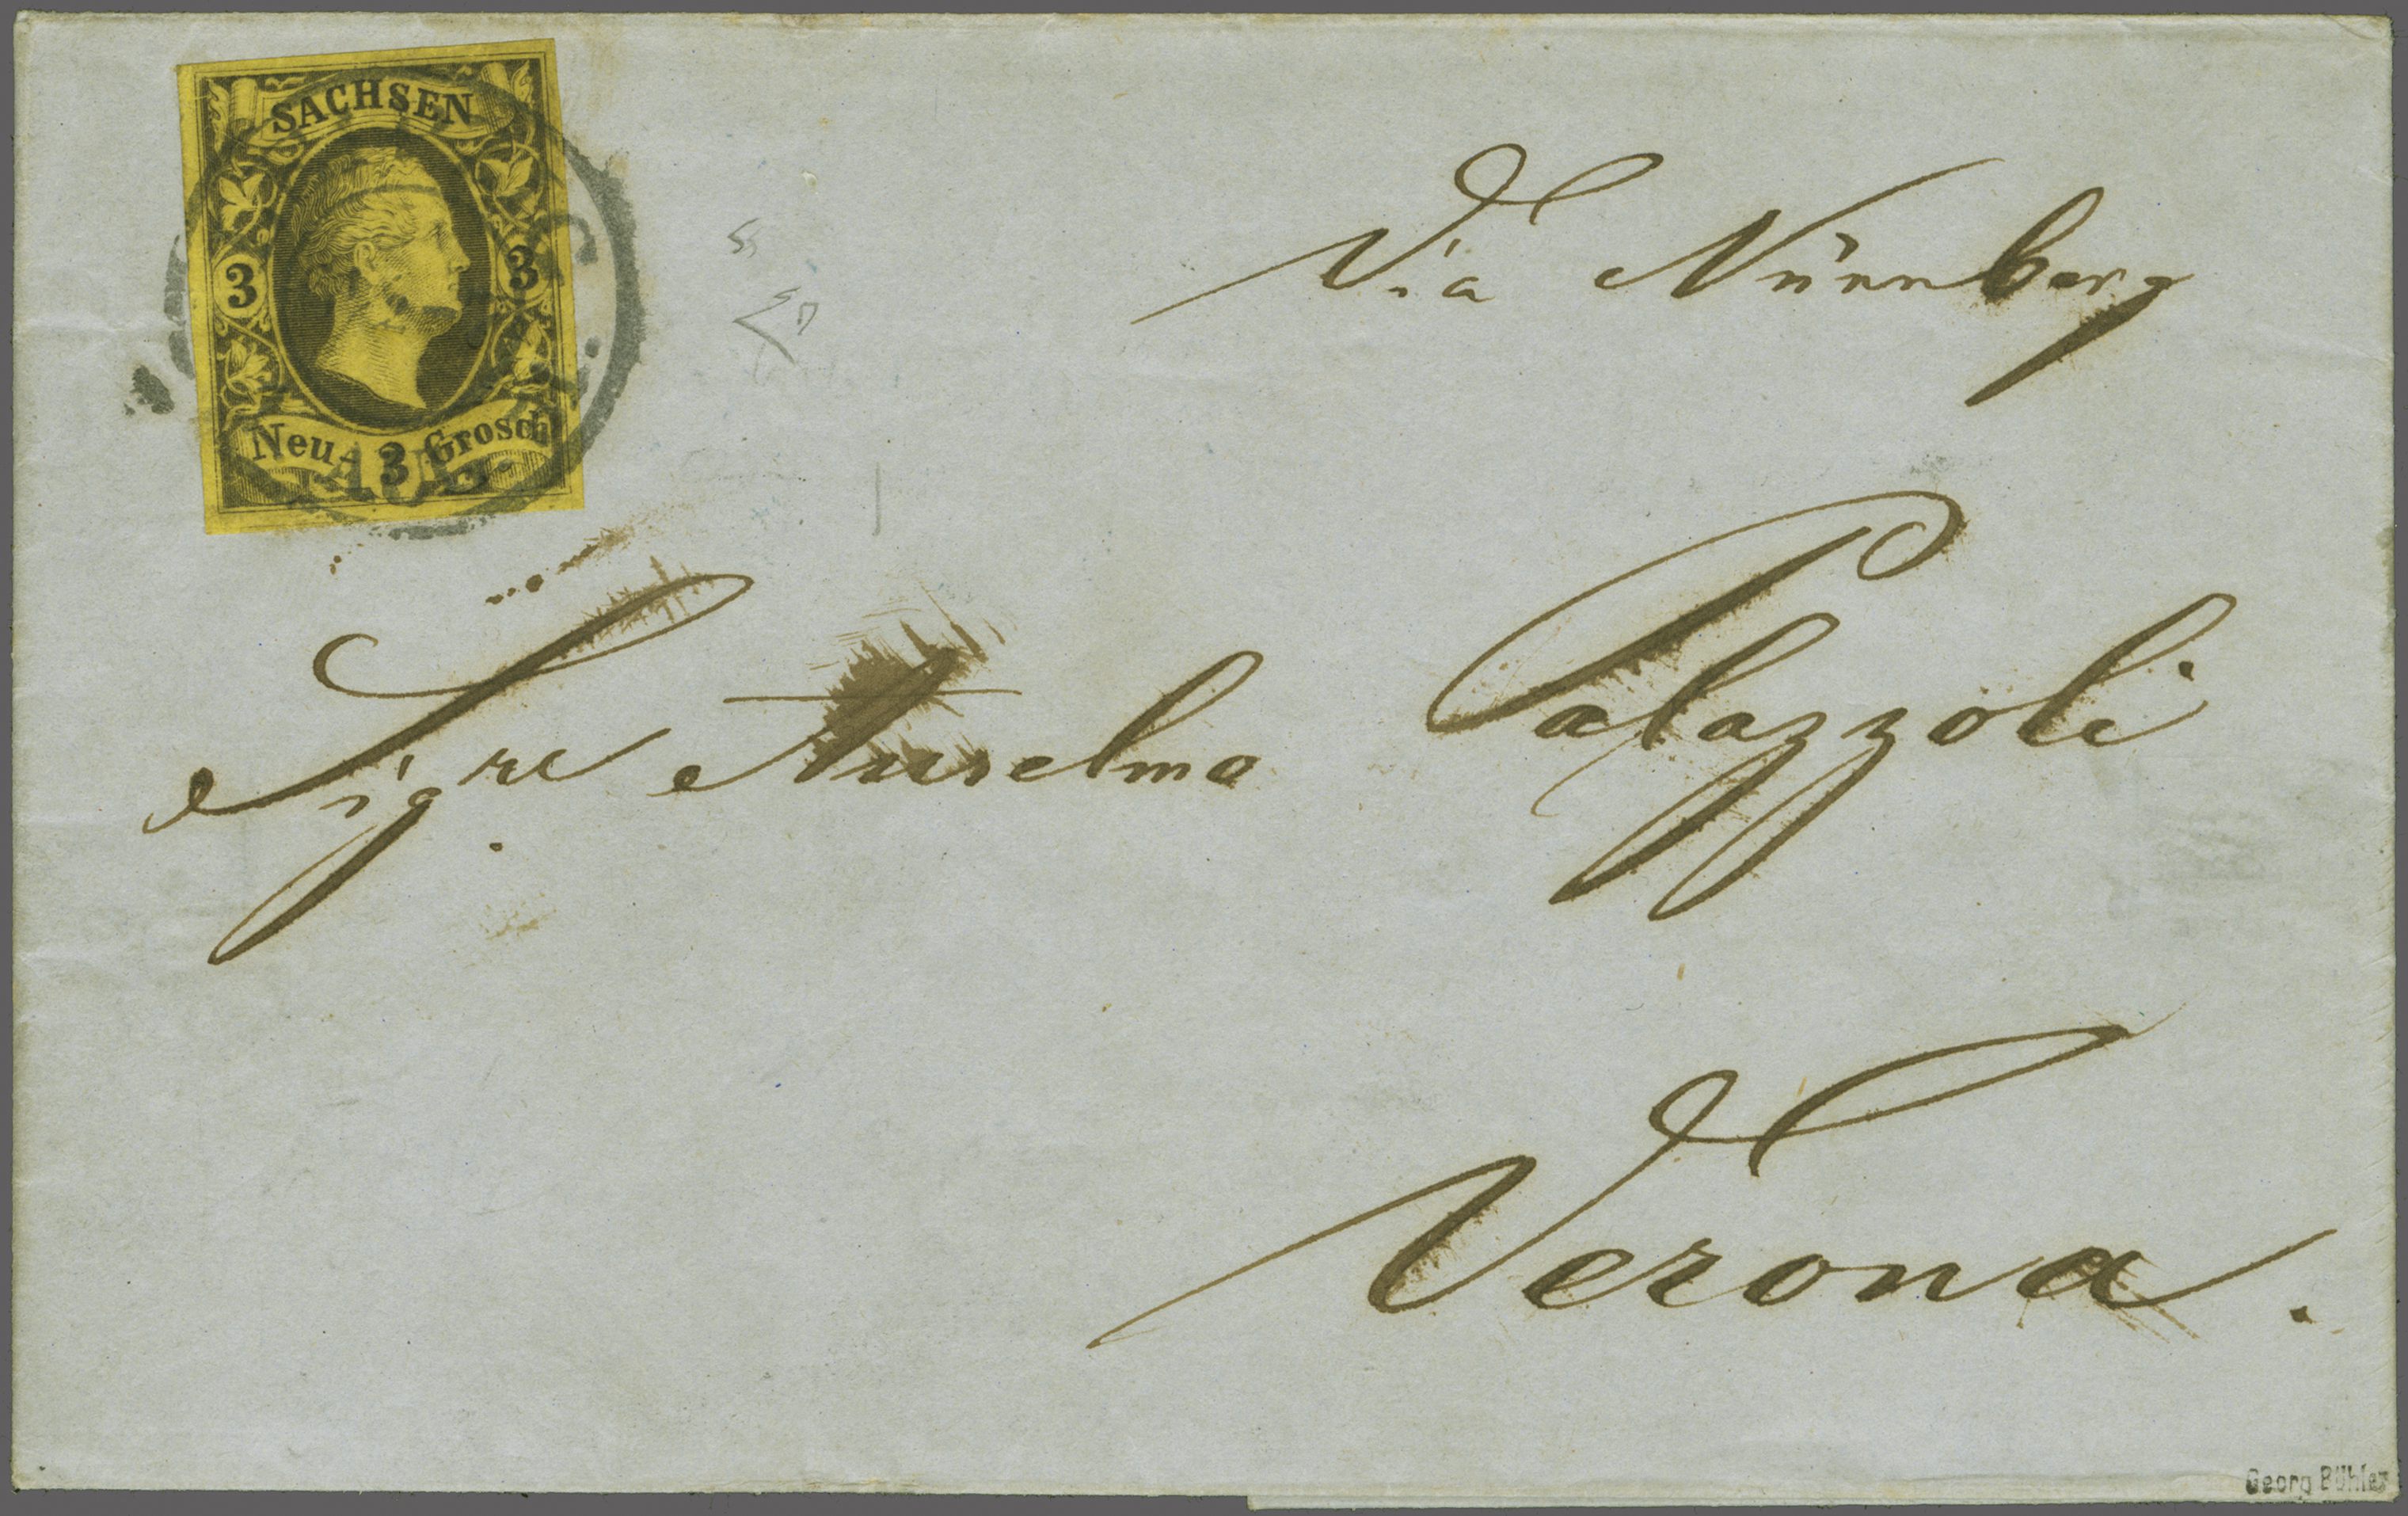 SACHSEN
3 3
Neu- 3 Grosch
Via Nürnberg
Sigre Anselmo Palazzoli
Verona.
Georg Bühler